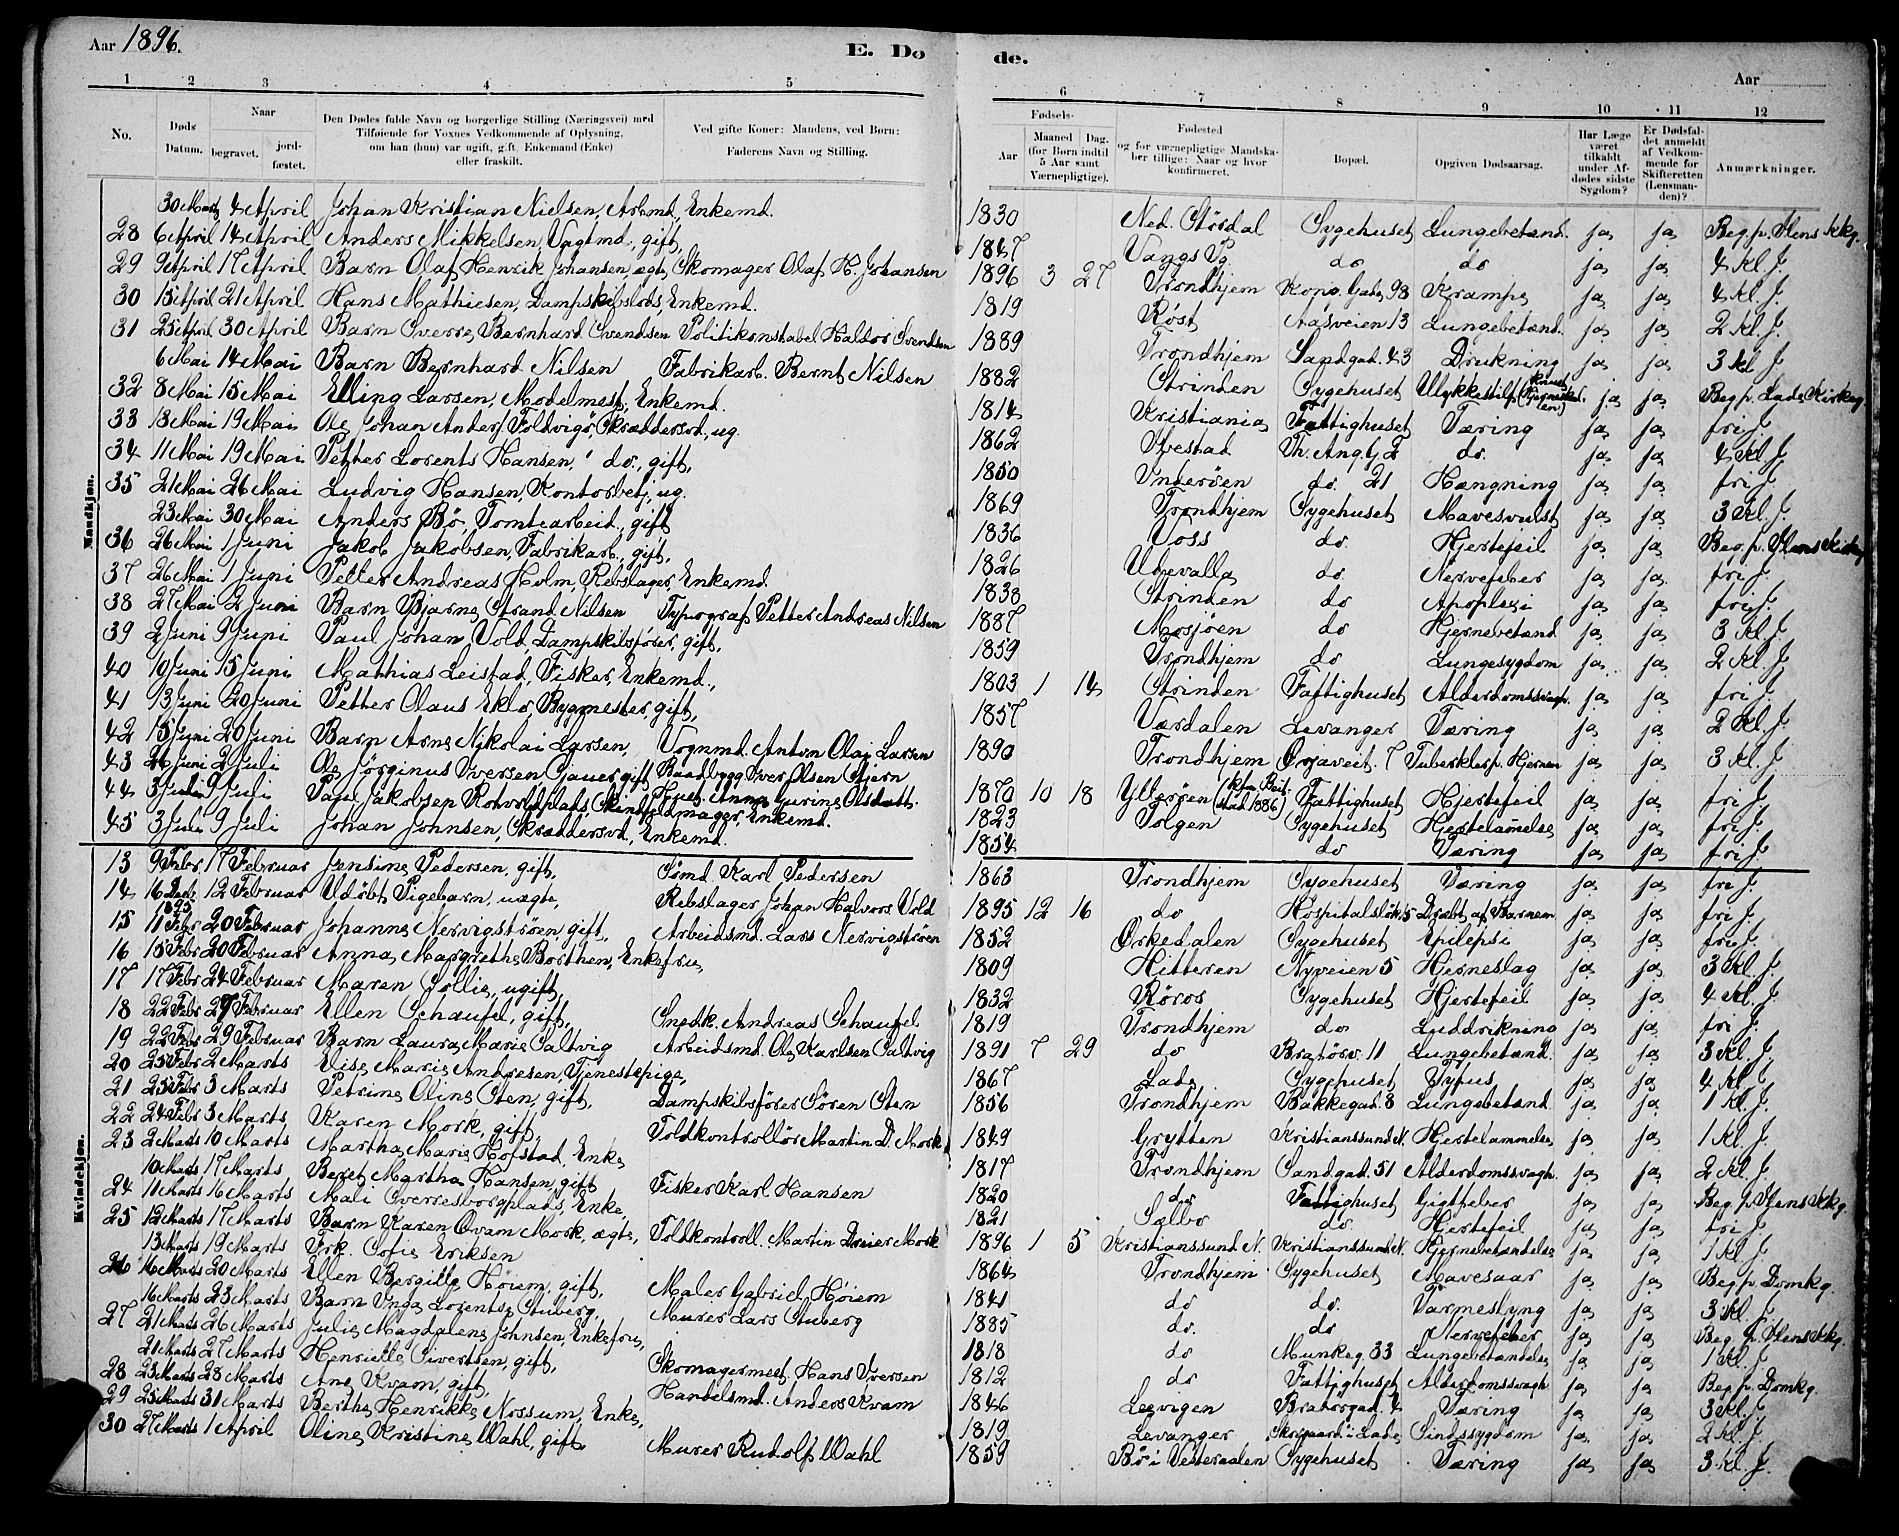 Aar 1896.
E. Dø
de.
Aar
1 2 3 4 5
6 7 8 9 10 11 12
No.
Døds Datum.
Naar
begravet.
jordfæstet.
Den Dødes fulde Navn og borgerlige Stilling (Næringsvei) med
Tilføiende for Voxnes Vedkommende af Oplysning,
om han (hun) var ugift, gift, Enkemand (Enke)
eller fraskilt.
Ved gifte Koner: Mandens, ved Børn:
Faderens Navn og Stilling.
Fødsels-
Aar
Maaned Dag.
(for Børn indtil
5 Aar samt
Værnepligtige).
Fødested
og for værnepligtige Mandska-
ber tillige: Naar og hvor
konfirmeret.
Bopæl.
Opgiven Dødsaarsag.
Har Læge
været
tilkaldt
under Af-
dødes sidste
Sygdom?
Er Dødsfal-
det anmeldt
af Vedkom-
mende for
Skifteretten
(Lensman-
den)?
Anmærkninger.
Mandkjøn.
30 Marts 4 April Johan Kristian Nielsen, Arbmd, Enkemd. 1830 Ned. Stördal Sygehuset Lungebetænd. ja ja Beg. p. Stens Kkg.
28 6 April 14 April Anders Mikkelsen, Vagtmd., gift, 1847 Vangs Pg. do do ja ja 4 Kl. J.
29 9 April 17 April Barn Olaf Henrik Johansen, ægte, Skomager Olaf H. Johansen 1896 3 27 Trondhjem Kong. Gade 98 Krampe ja ja 4 Kl. J.
30 15 April 21 April Hans Mathiesen, Dampskibslods, Enkemd. 1819 Røst Aasveien 13 Lungebetænd. ja ja 2 Kl. J.
31 25 April 30 April Barn Sverre Bernhard Svendsen Politikonstabel Haldor Svendsen 1889 Trondhjem Sandgad. 43 Drukning ja ja 3 Kl J.
6 Mai 14 Mai Barn Bernhard Nilsen Fabrikarb. Bernt Nilsen 1882 Strinden Sygehuset Ulykkestilf. ja ja Beg. p. Lade Kirkeg.
32 8 Mai 15 Mai Elling Larsen, Modelmest., Enkemd. 1814 Kristiania Fattighuset Tæring ja ja fri J.
33 13 Mai 19 Mai Ole Johan Anders Foldvigö, Skræddersvd., ug. 1862 Th. Ang. G. 2 do. ja ja 4 Kl J.
34 11 Mai 19 Mai Petter Lorents Hansen, do., gift, 1850 Ynderöen do. 21 Hængning ja ja fri J.
35 21 Mai 26 Mai Ludvig Hansen, Kontorbetj., ug. 1869 Trondhjem Sygehuset Mavesvulst ja ja 3 Kl. J.
23 Mai 30 Mai Anders Bö Tomtearbeid., gift 1836 Voss do. Hjertefeil ja ja Beg. p. Stens Kirkeg.
36 26 Mai 1 Juni Jakob Jakobsen, Fabrikarb., gift, 1826 Uhevalla do. Nervefeber ja ja fri J.
37 26 Mai 1 Juni Petter Andreas Holm, Rebslager, Enkemd. 1838 Strinden do Apoplexi ja ja fri J.
38 27 Mai 2 Juni Barn Bjarne Strand Nilsen Typograf Petter Andreas Nilsen 1887 Mosjöen do Hjernebetænd ja ja 3 Kl. J.
39 2 Juni 9 Juni Paul Johan Vold, Dampskibsfører, gift, 1859 Trondhjem do Lungesygdom ja ja 2 Kl. J.
40 10 Juni 15 Juni Mathias Leistad, Fisker, Enkemd., 1803 1 14 Strinden Fattighuset Alderdomssvagh. ja ja fri J.
41 13 Juni 20 Juni Petter Olaus Eklo, Bygmester, gift, 1857 Værdalen Levanger Tæring ja ja 2 Kl. J.
42 15 Juni 20 Juni Barn Arne Nikolai Larsen, Vognmd. Anton Olaj Larsen 1890 Trondhjem Örjaveit. 7 Tuberklerp. Hjernen ja ja 3 Kl. J.
43 26 Juni 2 Juli Ole Jörginus Iversen Gauer, gift Baadbygg. Iver Olsen Stjern 1870 10 18 Ytteröen Fattighuset Hjertefeil ja ja fri J.
44 3 Juli 9 Juli Paul Jakobsen Rotvoldplads, Skindfeldmager, Enkemd. 1823 Tolgen Sygehuset Hjertelamelse ja ja fri J.
45 3 Juli 9 Juli Johan Johnsen, Skræddersvd., Enkemd. 1854 do Tæring ja ja fri J.
Kvindekjøn.
13 9 Febr. 17 Februar Jensine Pedersen, gift, Sömd Karl Pedersen 1863 Trondhjem Sygehuset Tæring ja ja fri J.
14 16 Decb. 1895 12 Februar Udöbt Pigebarn, uægte, Rebslager Johan Halvors. Vold 1895 12 16 do Hospitalslökk. 5 Dræbt af Barnem. ja ja fri J.
15 11 Febr 20 Februar Johanne Nervigströen, gift, Arbeidsmd. Lars Nervigströen 1852 Orkedalen Sygehuset Epilepsi ja ja fri J.
16 15 Febr 20 Februar Anna Margrethe Borthen, Enkefrue 1809 Hitteren Nyveien 5 Hjerneslag ja ja 3 Kl. J.
17 17 Febr 24 Februar Maren Sollie, ugift, 1832 Röros Sygehuset Hjertefeil ja ja 4 Kl. J.
18 22 Febr 27 Februar Ellen Schaufel, gift, Snedk. Andreas Schaufel 1819 Trondhjem do Luddrikning ja ja fri J.
19 22 Febr 29 Februar Barn Laura Marie Saltvig Arbeidsmd. Ole Karlsen Saltvig 1891 7 29 do Bratörv. 11 Lungebetænd. ja ja 3 Kl. J.
20 25 Febr 2 Marts Elise Marie Andresen, Tjenestepige, 1867 Lade Sygehuset Tyfus ja ja 4 Kl. J.
21 25 Febr 3 Marts Petrine Oline Sten, gift, Dampskibsfører Sören Sten 1856 Trondhjem Bakkegad. 8 Lungebetænd. ja ja 1 Kl. J.
22 24 Febr 3 Marts Karen Mork, gift, Toldkontrollör Martin D. Mork 1849 Grytten Kristianssund N. Hjertelammelse ja ja 1 Kl. J.
23 2 Marts 10 Marts Martha Marie Hofstad, Enke 1817 Trondhjem Sandgad. 51 Alderdomssvagh. ja ja 2 Kl. J.
10 Marts 17 Marts Beret Martha Hansen, gift Fisker Karl Hansen 1820 do Fattighuset Gigtfeber ja ja Beg. p. Stens Kkg.
24 11 Marts 16 Marts Mali Sverresborgplads, Enke, 1821 Sælbo do. Hjertefeil ja ja fri J.
25 12 Marts 17 Marts Barn Karen Qvam Mork, ægte, Toldkontroll. Martin Dreier Mork 1896 1 5 Kristianssund N. Kristianssund N. Hjernebetændelse ja ja 1 Kl J.
13 Marts 19 Marts Frk. Sofie Eriksen 1864 Trondhjem Sygehuset Mavesaar ja ja Beg. p. Domkg.
26 16 Marts 20 Marts Ellen Bergitte Höiem, gift, Maler Gabriel Höiem 1841 do do. Tarmeslyng ja ja 3 Kl. J.
16 Marts 23 Marts Barn Inga Lorentse Stuberg, Murer Lars Stuberg 1885 do. do Nervefeber ja ja Beg. p. Stens Kkg.
27 21 Marts 26 Marts Julie Magdalene Johnsen, Enkefrue, 1818 do Munkeg. 33 Lungebetændelse ja ja 1 Kl. J.
21 Marts 27 Marts Henriette Sivertsen, gift, Skomagermest. Hans Iversen 1812 do Fattighuset Alderdomssvagh ja ja Beg. p. Domkg.
28 23 Marts 28 Marts Ane Kvam, gift, Handelsmd. Anders Kvam 1846 Lexvigen Bratörgad. 4 Tæring ja ja 3 Kl. J.
29 25 Marts 31 Marts Berthe Henrikke Nossum, Enke, 1819 Levanger i Lade Sindssygdom ja ja 2 Kl. J.
30 27 Marts 1 April Oline Kristine Wahl, gift Murer Rudolf Wahl 1859 Bö i Vesteraalen Sygehuset Tæring ja ja 3 Kl. J.